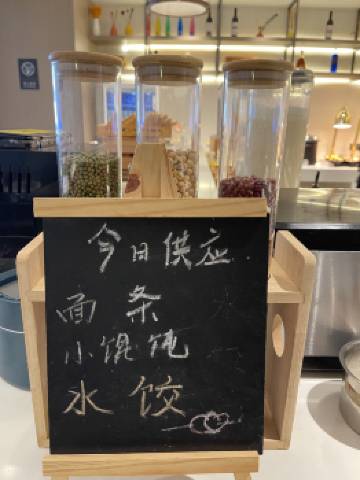 今日供应
面条
小馄饨
水饺